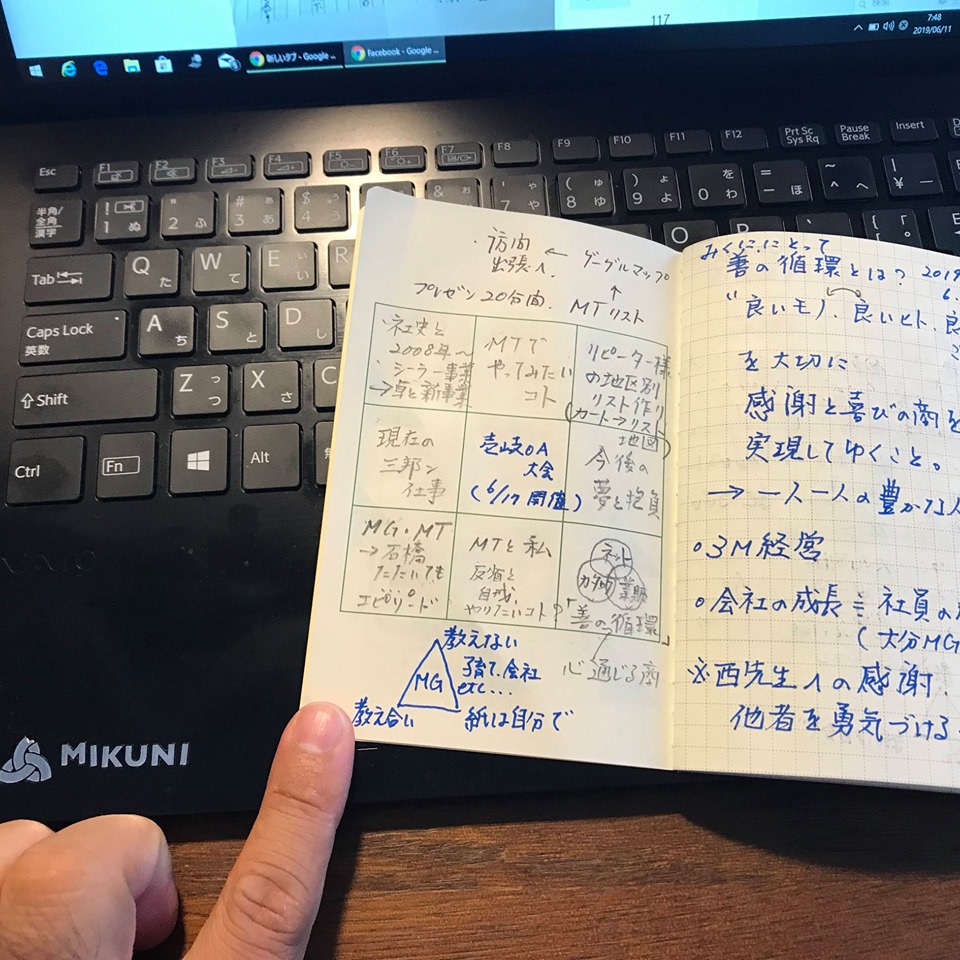 117
7:48
2019/06/11
新しいタブ - Google ...
Facebook - Google ...
Esc
F1
F2
F3
F4
F5
F6
F7
F8
F9
F10
F11
F12
Prt Sc
Sys Rq
Pause
Break
Insert
半角/
全角
漢字
Tab
Q た
W て
E
R
Caps Lock
英数
A ち
S と
D し
Shift
Z
X さ
C
Ctrl
Fn
Alt
O
P
MIKUNI
・訪問
出張へ。 ← グーグルマップ
↑
プレゼン20分間. MTリスト
・社史と
2008年〜
シーラー事業
→卓と新事業
MTで
やってみたい
コト
リピーター様
の地区別
リスト作り
(カート→リスト
地図)
現在の
三邦と
仕事
大会
(6/17 開催)
今後の
夢と抱負
MG・MT
→石橋
たたいても
エピソード
MTと私
反省と
自戒、
やりたいコト
ネット
カタログ
業販
「善の循環」
心通じる商
教えない
子育て、会社
etc...
MG
教え合い
紙は自分で
みくににとって
善の循環とは? 2019
6.
"良いモノ、良いヒト、良
を大切に
感謝と喜びの商を
実現してゆくこと。
→ 一人一人の豊かな人
○3M経営
○会社の成長≒社員の
(大分MG
※西先生への感謝.
他者を勇気づける